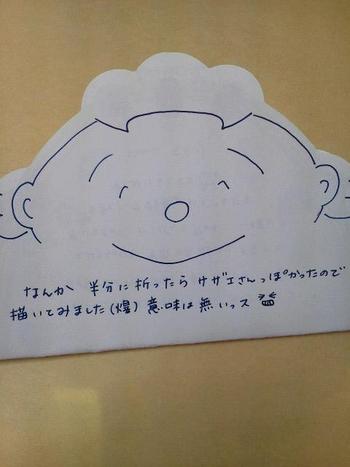 なんか 半分に折ったら サザエさんっぽかったので
描いてみました(爆) 意味は無いっス